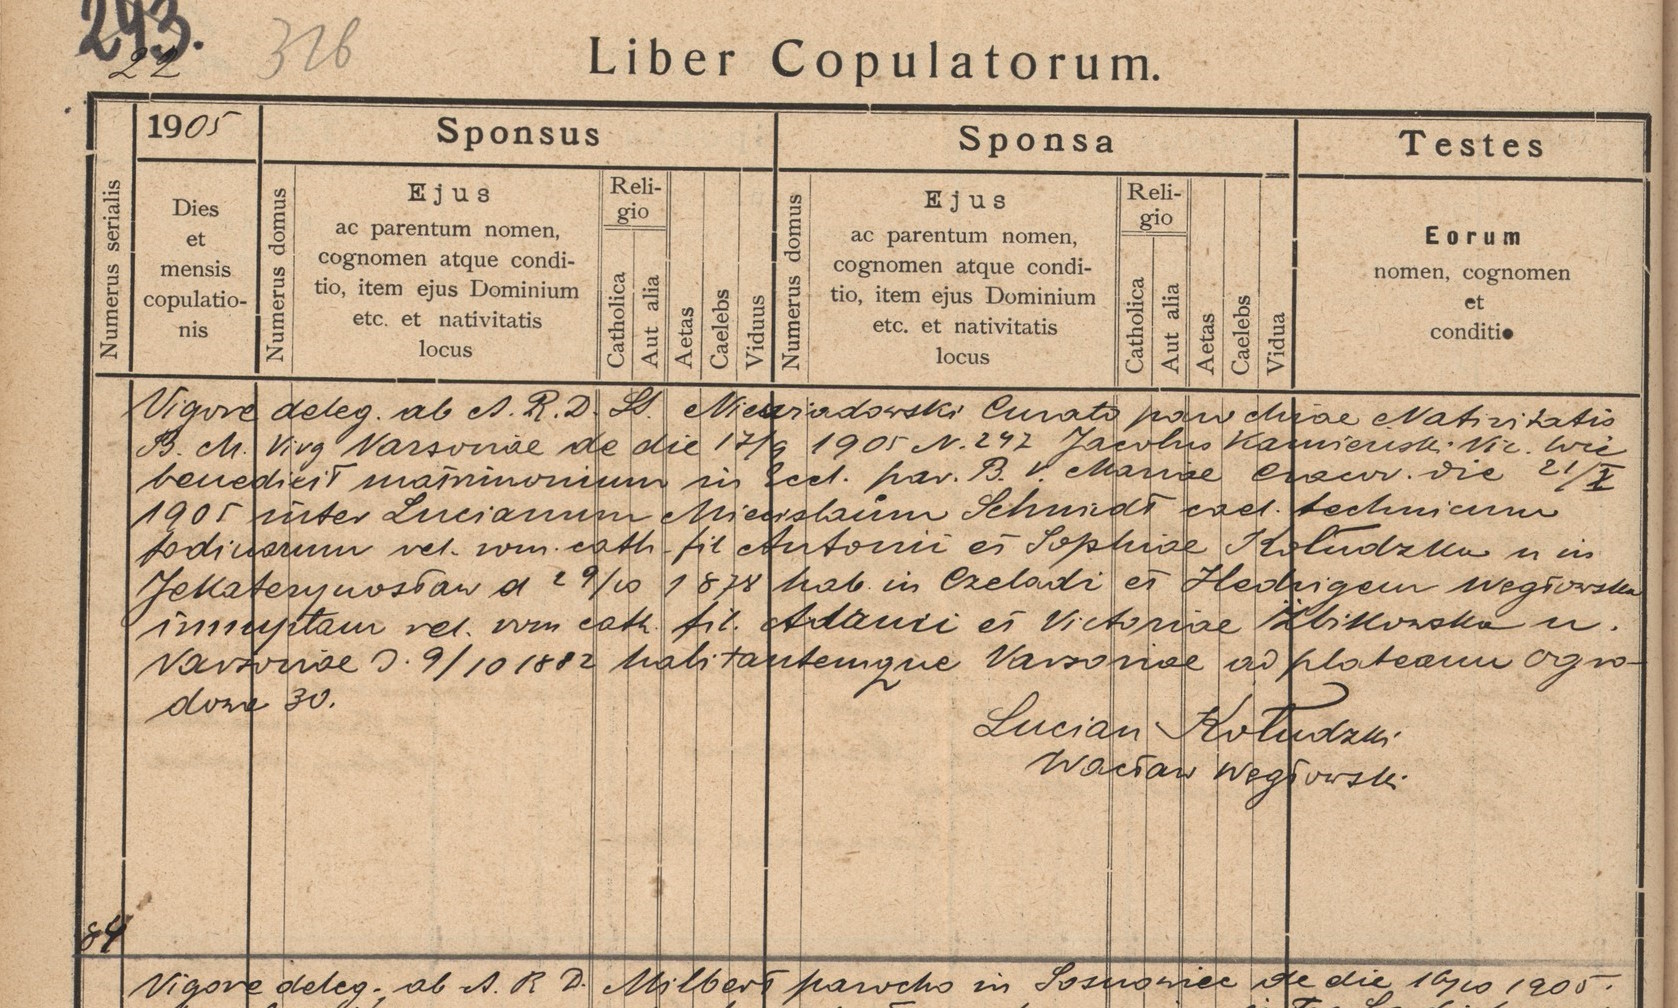 293.
22
326
Liber Copulatorum.
1905
Sponsus
Sponsa
Testes
Numerus serialis
Dies
et
mensis
copulatio-
nis
Numerus domus
Ejus
ac parentum nomen,
cognomen atque condi-
tio, item ejus Dominium
etc. et nativitatis
locus
Reli-
gio
Catholica
Aut alia
Aetas
Caelebs
Viduus
Numerus domus
Ejus
ac parentum nomen,
cognomen atque condi-
tio, item ejus Dominium
etc. et nativitatis
locus
Reli-
gio
Catholica
Aut alia
Aetas
Caelebs
Vidua
Eorum
nomen, cognomen
et
conditio
Vigore deleg. ab A. R. D. St. Niewiadowski Curato parochiae Nativitatis
B. M. Virg Varsoviae de die 17/9 1905 N. 247 Jacobus Kamieński Vic.
benedixit matrimonium in Eccl. par. B. V. Mariae Cracov. die 21/X
1905 inter Lucianum Miecislaum Schmidt cael. technicum
fodinarum rel. rom. cath. fil Antonii et Sophiae Kołudzka n in
Jekaterynosław d 29/10 1878 hab. in Czeladi et Hedvigem Węgłowska
innuptam rel. rom cath. fil. Adami et Victoriae Żbikowska n.
Varsoviae d. 9/10 1882 habitantemque Varsoviae ad plateam Ogro-
dowa 30.
Lucian Kołudzki
Wacław Węgłowski
84
Vigore deleg. ab A. R D. Milbert parocho in Sosnowiec de die 16/10 1905.